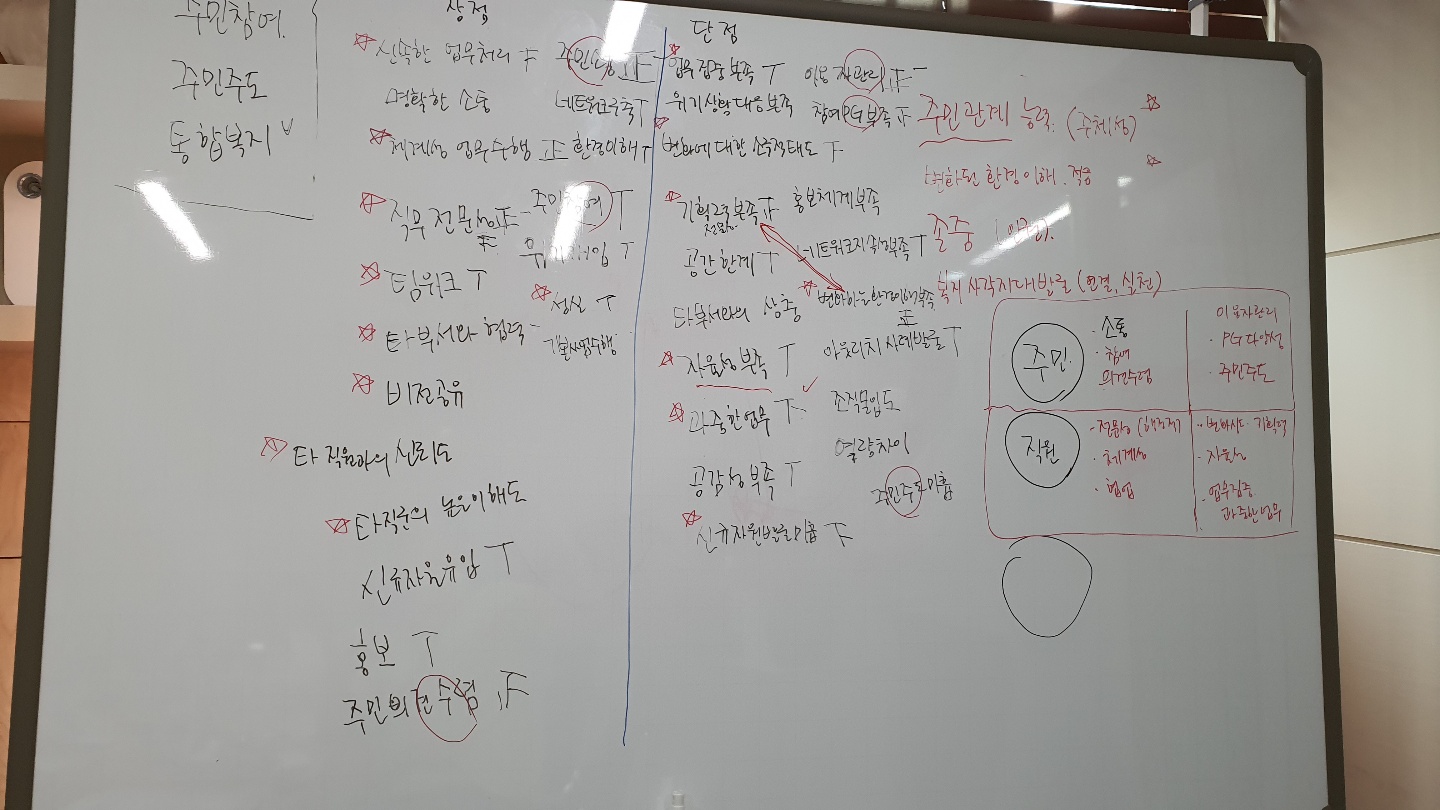 주민참여.
주민주도
통합복지 ∨
장점
☆신속한 업무처리
명확한 소통
☆체계성 업무수행 正
☆직무 전문성 正
☆팀워크 T
☆타부서와 협력 -
☆비전공유
☆타 직원과의 신뢰도
☆타직군의 높은이해도
신규자원유입 T
홍보 T
주민의견수렴
네트워크구축 T
환경이해 T
주민참여 T
☆성실 T
단점
☆업무집중부족 T
위기상황대응부족
☆변화에 대한 소극적태도
☆기획력부족
전문성
공간한계 T
타부서와의 상충
☆자율성부족 T
☆과중한업무
공감성부족 T
☆신규자원발굴미흡
이용자관리 正一
참여PG부족
홍보체계부족
네트워크지속부족 T
☆변화하는환경이해부족
正
아웃리치 사례발굴 T
✓
조직몰입도
역량차이
주민주도미흡
주민관계 능력. (주체성) ☆
변화된 환경이해. 적응 ☆
존중
복지사각지대발굴 (연결, 실천)
주민
· 소통
· 참여
의견수렴
이용자관리
· PG다양성
· 주민주도
직원
· 체계성
· 협업
· 자율성
· 업무집중.
과중한업무